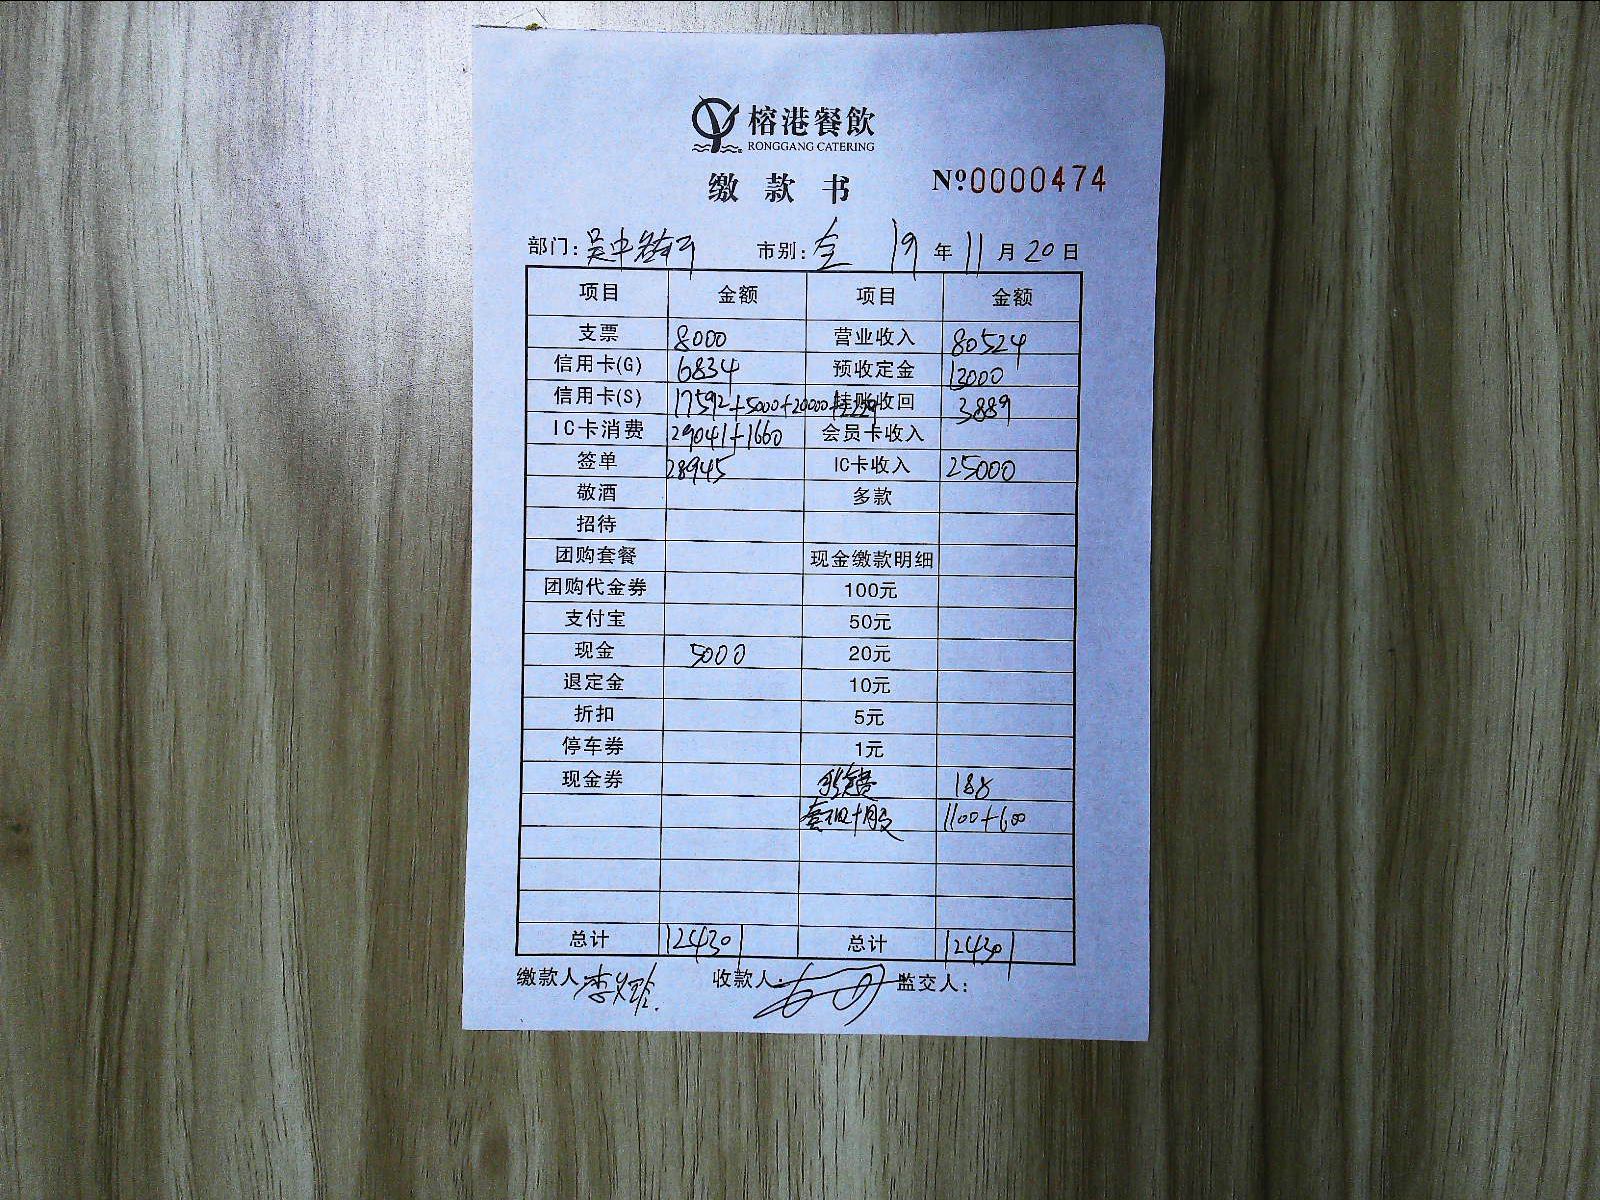 榕港餐飲
RONGGANG CATERING
缴款书 Nº0000474
部门: 吴中 市别: 全 19年11月20日
项目 金额 项目 金额
支票 8000 营业收入 80524
信用卡(G) 6834 预收定金 13000
信用卡(S) 17592+5000+20000+2229 挂账收回 3889
IC卡消费 29041+1660 会员卡收入
签单 28945 IC卡收入 25000
敬酒 多款
招待
团购套餐 现金缴款明细
团购代金券 100元
支付宝 50元
现金 5000 20元
退定金 10元
折扣 5元
停车券 1元
现金券 188
1100+600
总计 124301 总计 124301
缴款人: 李 收款人: 监交人: